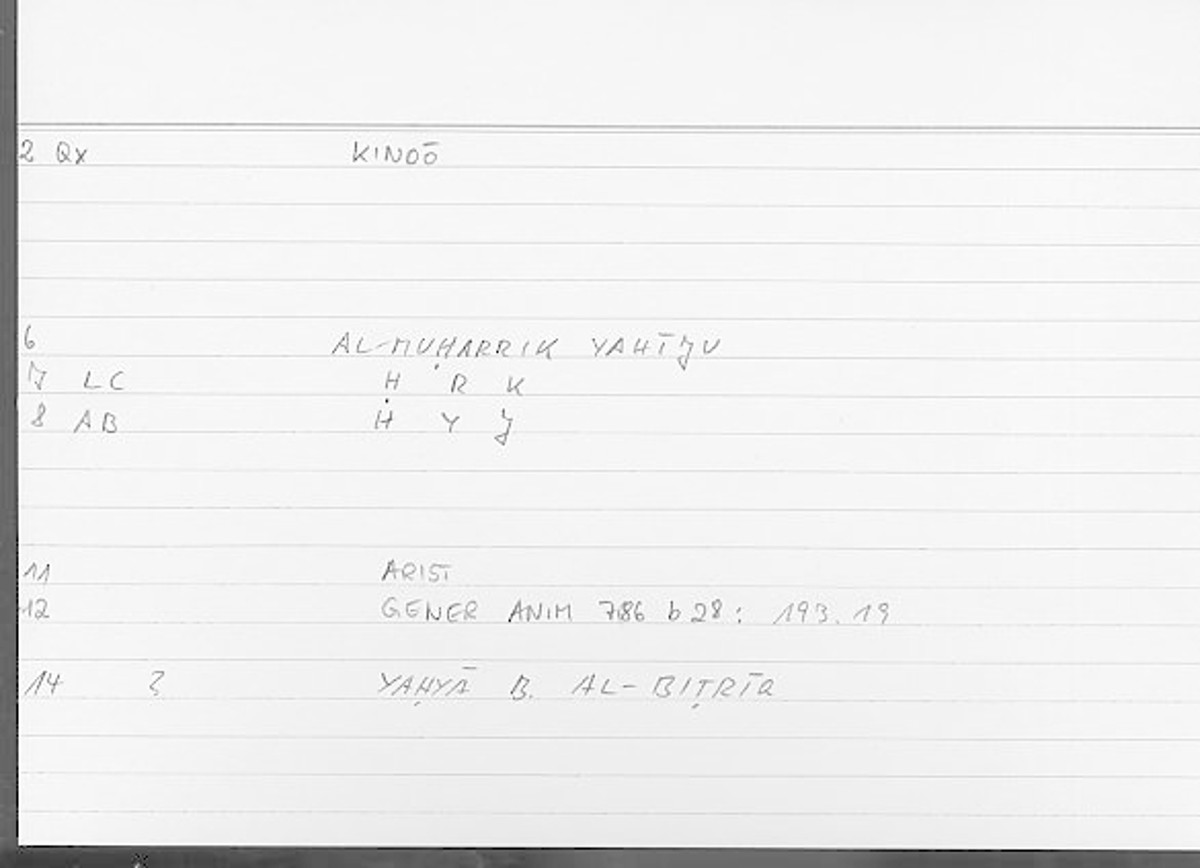 2 Qx KINOŌ
6 AL-MUḤARRIK YAHĪJU
7 LC Ḥ R K
8 AB H Y J
11 ARIST
12 GENER ANIM 786 b 28 : 193.19
14 ? YAḤYĀ B. AL-BIṬRĪQ